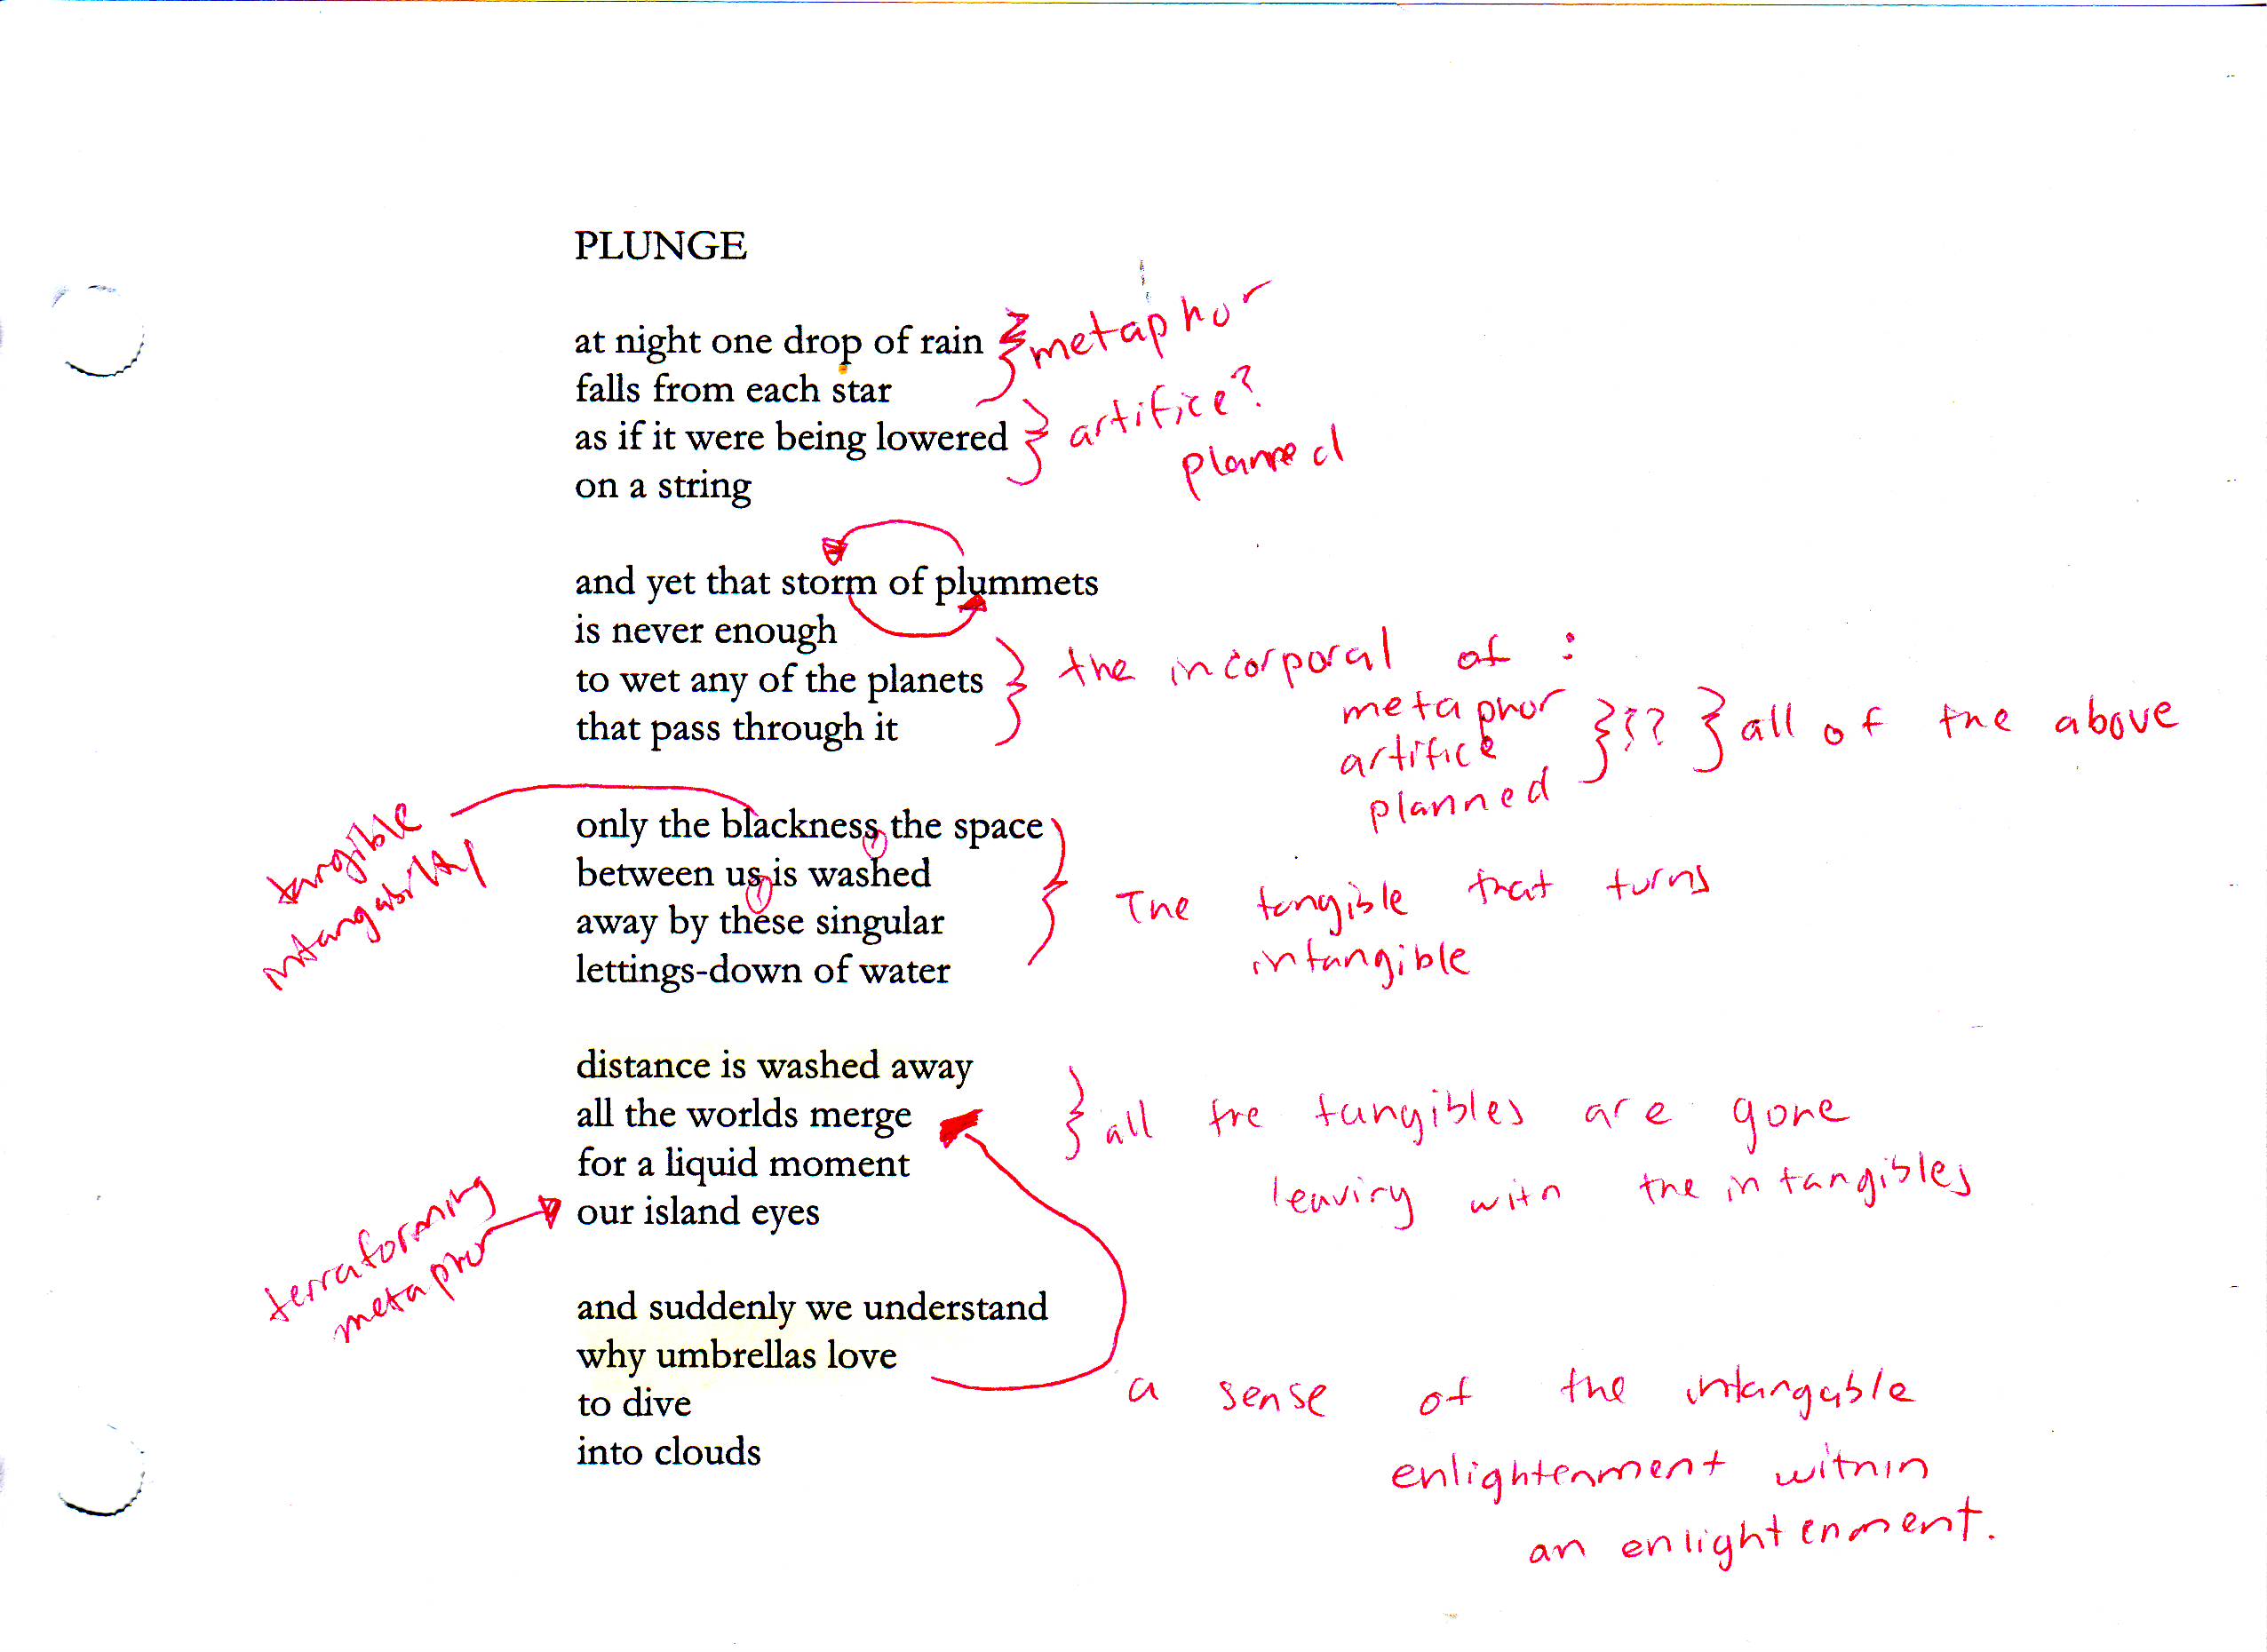 PLUNGE
at night one drop of rain
metaphor
falls from each star
as if it were being lowered
artifice?
planned
on a string
and yet that storm of plummets
is never enough
to wet any of the planets
the incorporal of :
that pass through it
metaphor
artifice
planned
??
all of the above
only the blackness, the space
between us, is washed
away by these singular
lettings-down of water
tangible
intangability
The tangible that turns
intangible
distance is washed away
all the worlds merge
all the tangibles are gone
for a liquid moment
leaving with the intangibles
our island eyes
terraforming
metaphor
and suddenly we understand
why umbrellas love
to dive
into clouds
a sense of the intangable
enlightenment within
an enlightenment.